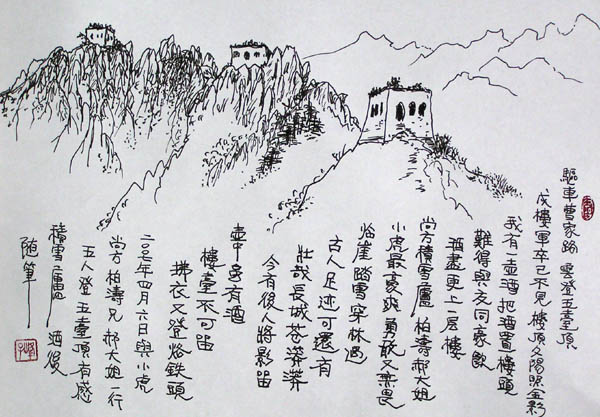 驅車曹家路 登五臺頂
戍樓軍卒已不見 樓頂夕陽照金影
我有一壺酒 把酒置樓頭
難得與友同豪飲
酒盡更上一层樓
尚方積雪廬 柏濤郝大姐
小虎最豪爽 勇敢又無畏
临崖踏雪穿林過
古人足迹可還有
壯哉長城蒼漭漭
今有後人將影留
壺中有酒
樓臺不可留
拂衣又登烙鉄頭
二〇〇七年四月六日與小虎
尚方柏濤兄郝大姐一行
五人登五臺頂有感
積雪廬 酒後
随筆